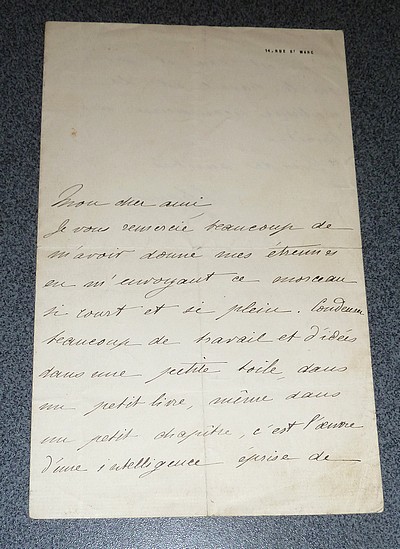 14, RUE St MARC
Mon cher ami,
Je vous remercie beaucoup de
m'avoir donné mes étrennes
en m'envoyant ce morceau
si court et si plein. Condenser
beaucoup de travail et d'idées
dans une petite toile, dans
un petit livre, même dans
un petit chapitre, c'est l'œuvre
d'une intelligence éprise de